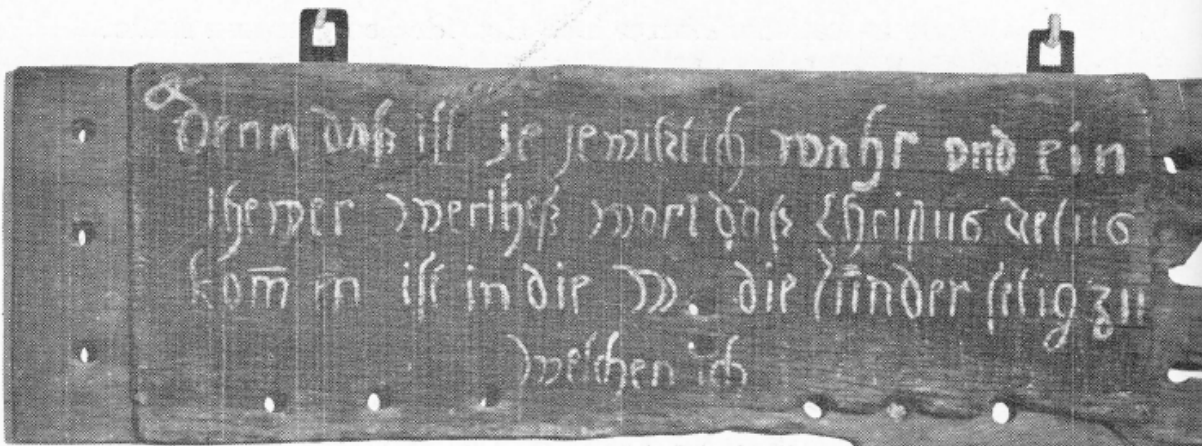 Denn daß ist je jewißlich wahr vnd ein
thewer wertheß wort daß Christus Jesus
kom̅ en ist in die W. die sün̅der selig zu
welchen ich